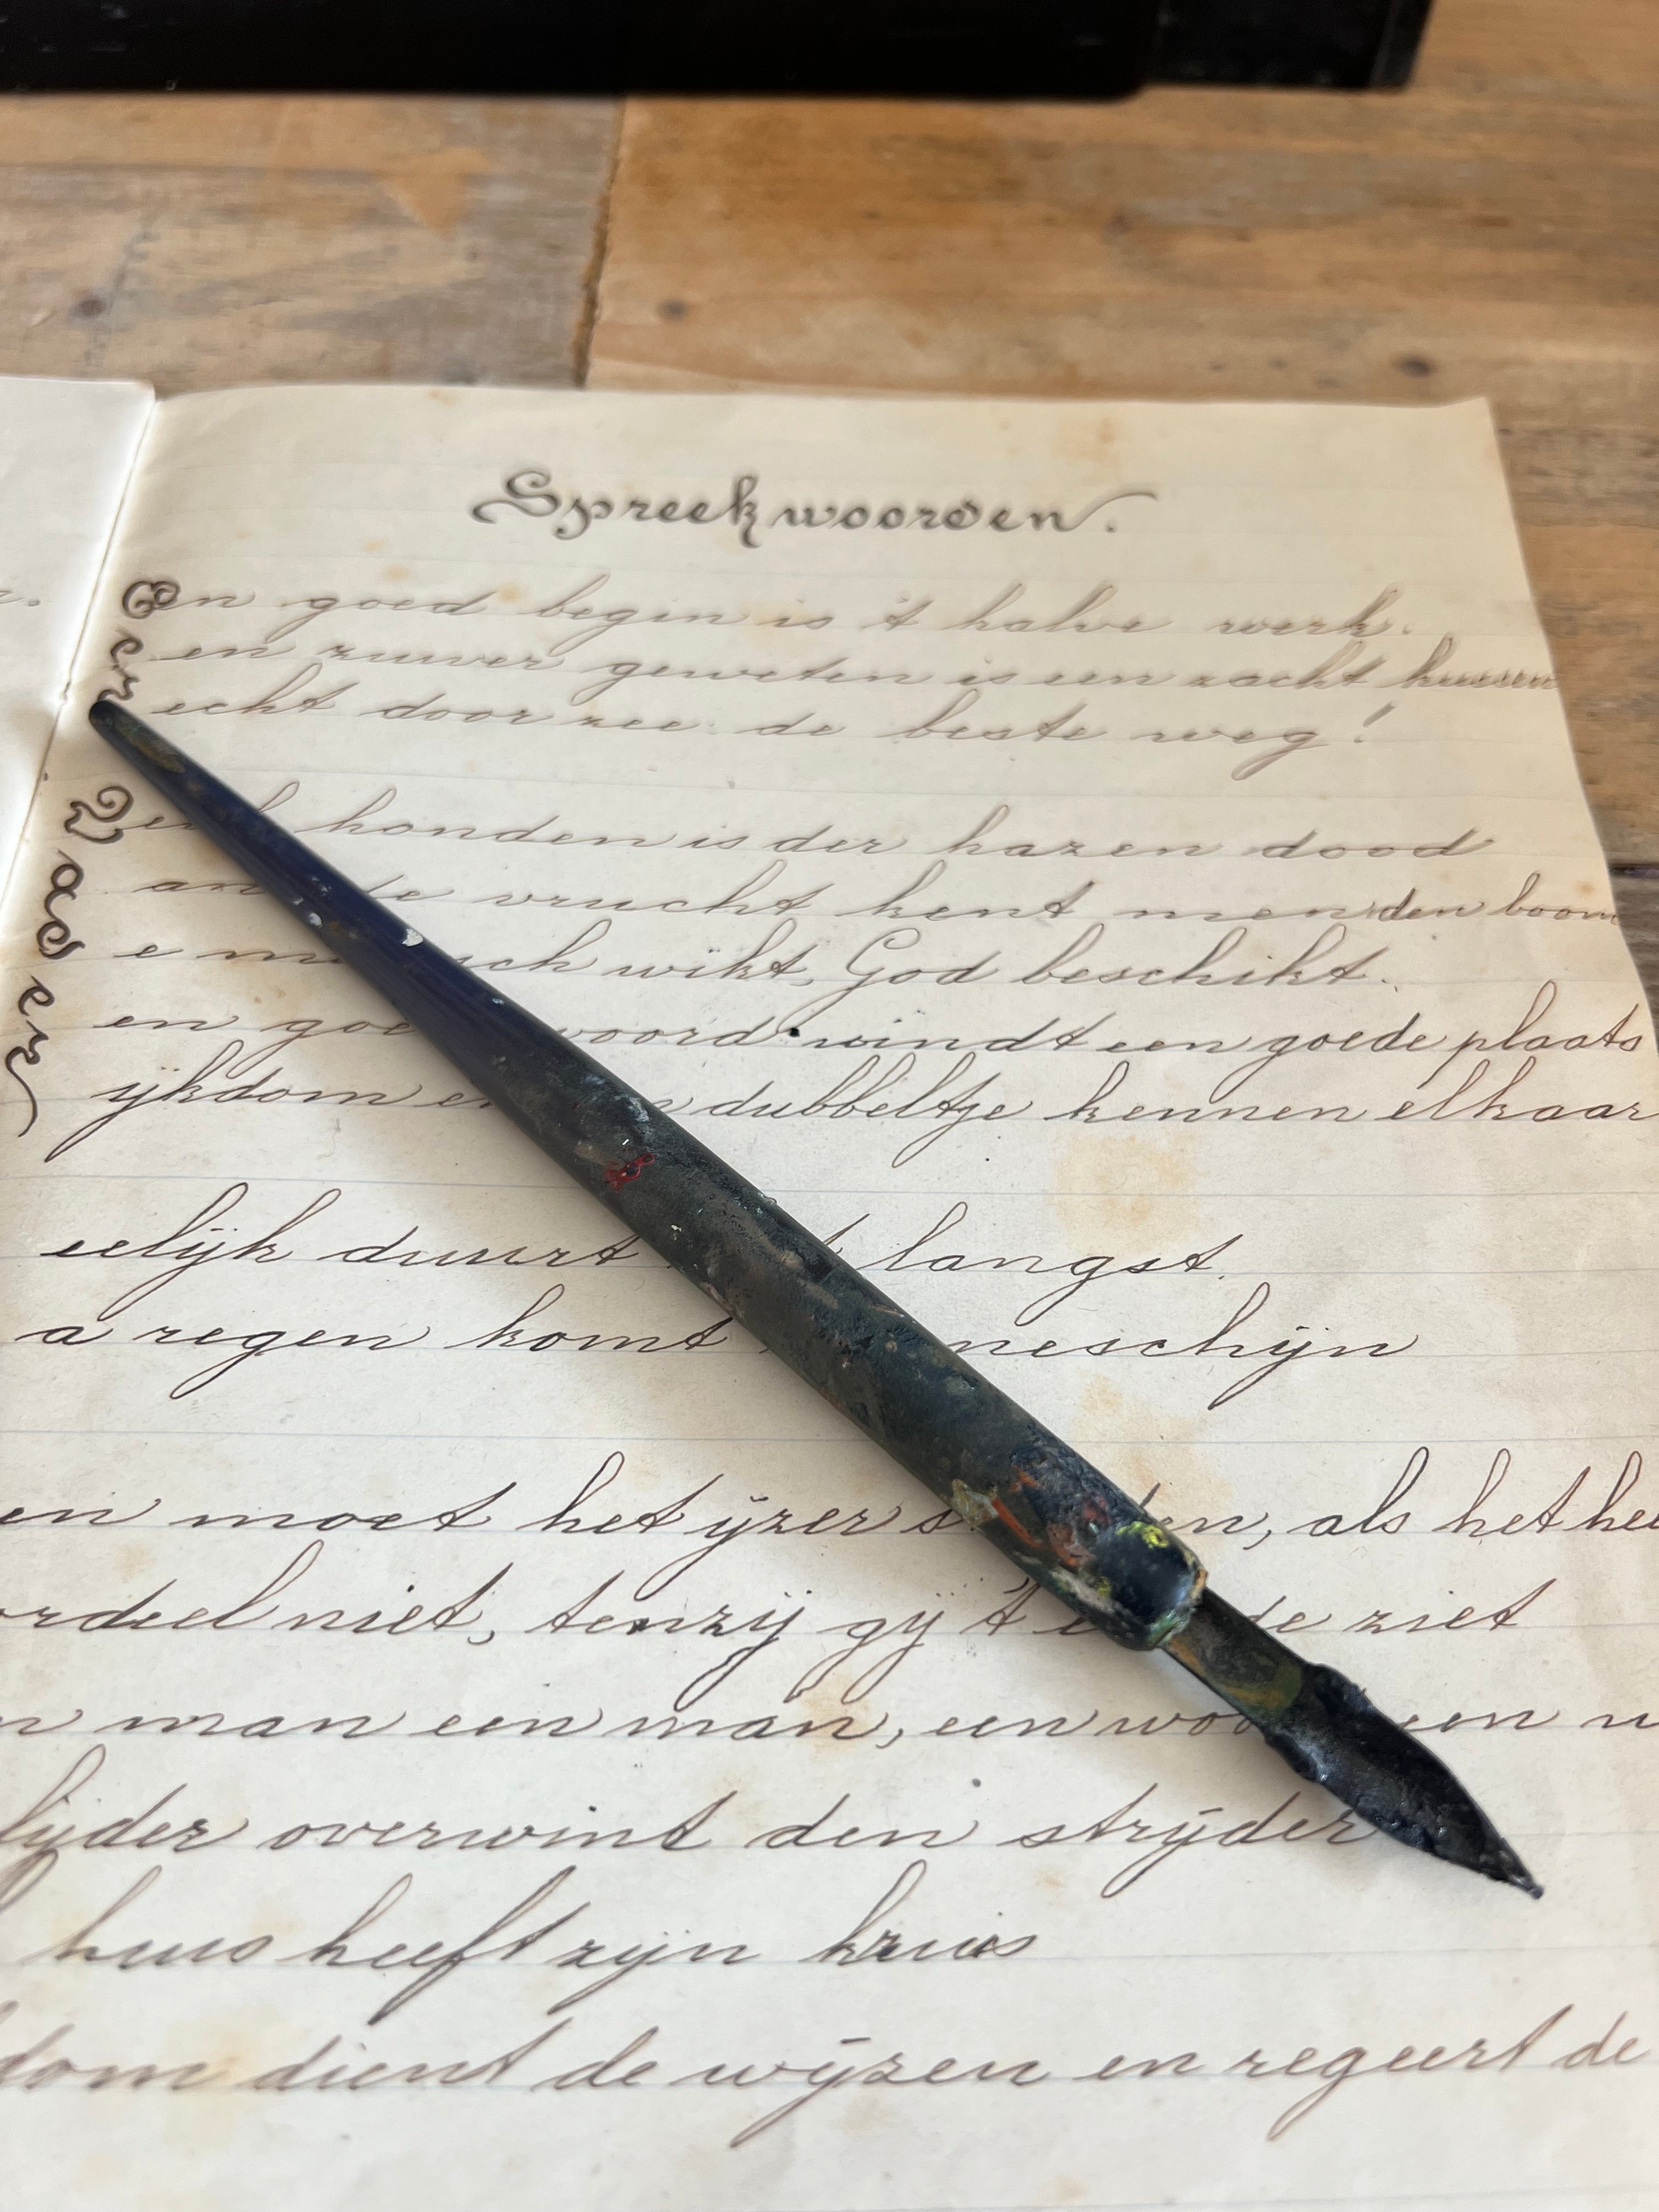 Spreekwoorden.
Een goed begin is 't halve werk.
en zuiver geweten is een zacht kussen
echt door zee: de beste weg!
honden is der hazen dood
an de vrucht kent men den boom
e mensch wikt, God beschikt.
en goed woord vindt een goede plaats
ijkdom en dubbeltje kennen elkaar
eelijk duurt langst.
a regen komt neschijn
en moet het ijzer s en, als het hee
ordeel niet, tenzij gij 't e de ziet
n man een man, een woo een w
lijder overwint den strijder
huis heeft zijn kruis
dom dient de wijzen en regeert de